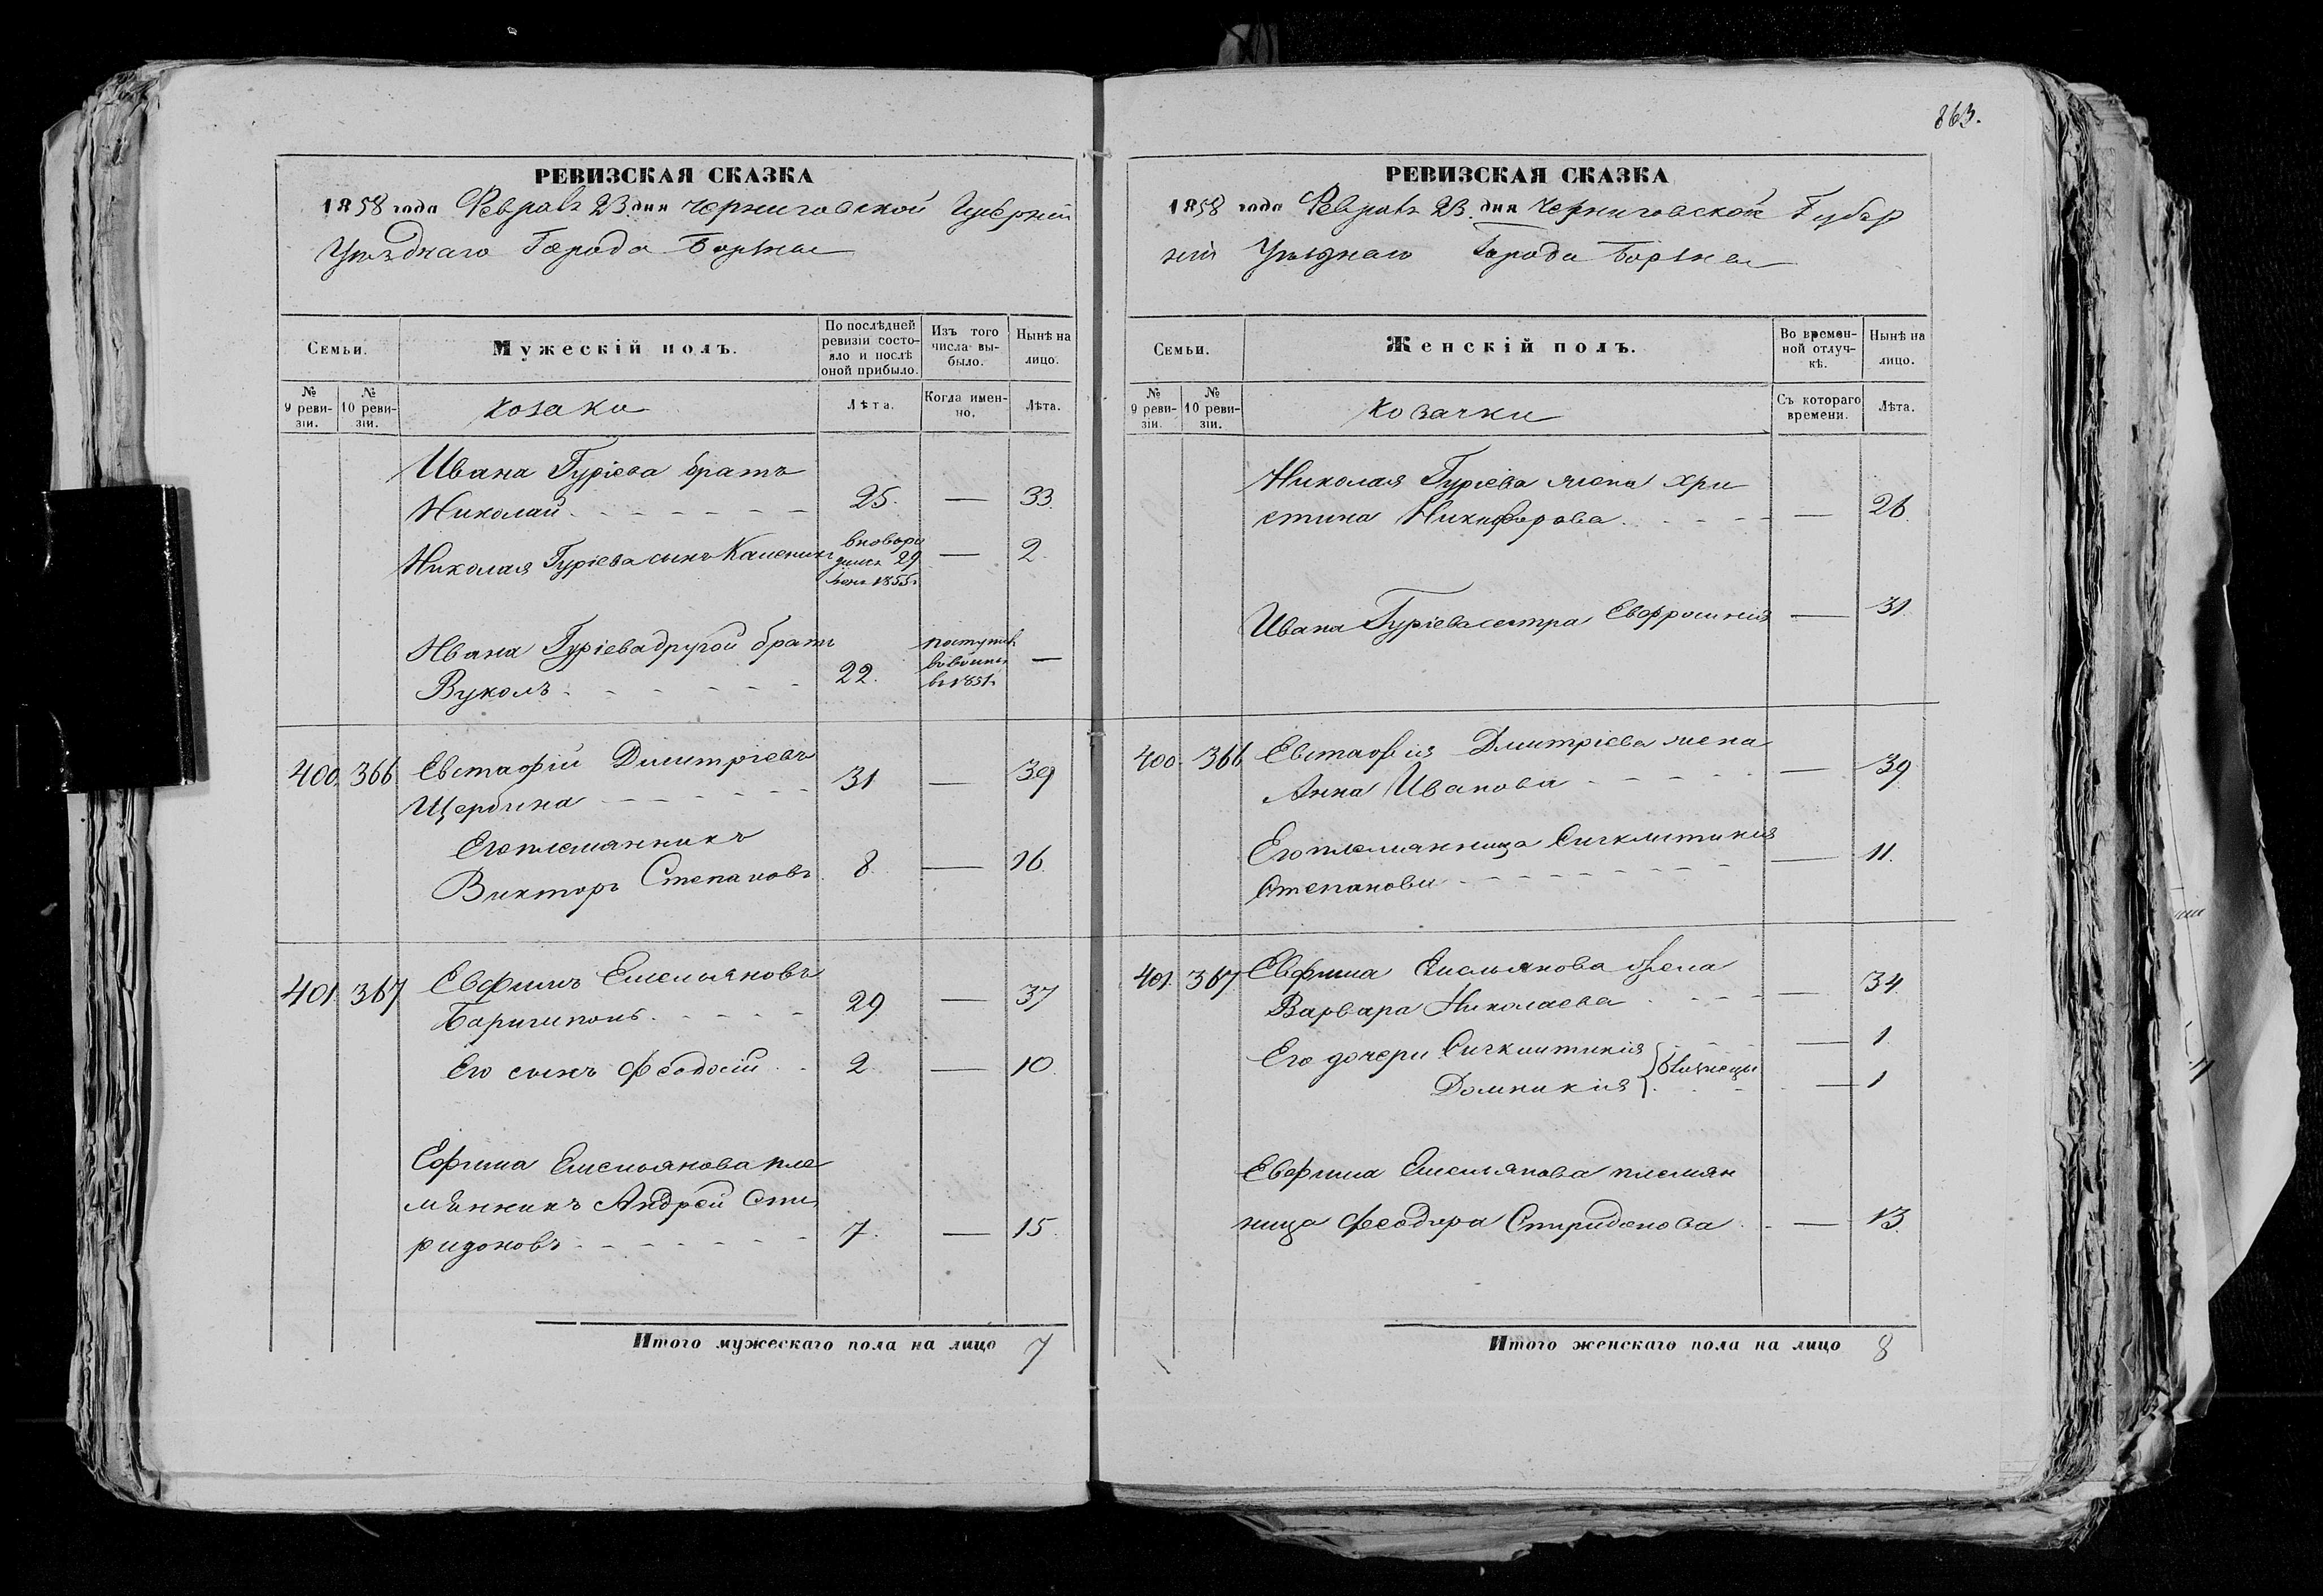 863.
РЕВИЗСКАЯ СКАЗКА
1858 года Февраля 23 дня Черниговской Губерніи
Уѣзднаго Города Борзны
Семьи.
Мужескій полъ.
По послѣдней ревизіи состояло и послѣ оной прибыло.
Изъ того числа выбыло.
Нынѣ на лицо.
№ 9 ревизіи.
№ 10 ревизіи.
Козаки
Лѣта.
Когда именно.
Лѣта.
Ивана Гуріева братъ
Николай 25. — 33.
Николая Гуріева сынъ 29 1855 — 2.
Ивана Гуріева другой братъ
Вуколъ 22. поступил в 1851 —
400. 366. Евстафій Димитріевъ
Щербина 31 — 39
Его племянникъ
Викторъ Степановъ. 8. — 16.
401. 367 Евфимъ Емельяновъ
29 — 37
Его сынъ Феодосій 2 — 10.
Ефима Емельянова пле
мянникъ Андрей Спи
ридоновъ 7. — 15.
Итого мужескаго пола на лицо 7
РЕВИЗСКАЯ СКАЗКА
1858 года Февраля 23. дня Черниговской Губер
ніи Уѣзднаго Города Борзны
Семьи.
Женскій полъ.
Во временной отлучкѣ.
Нынѣ на лицо.
№ 9 ревизіи.
№ 10 ревизіи.
Козачки
Съ котораго времени.
Лѣта.
Николая Гуріева жена Хри
стина Никифорова. — 26.
Ивана Гуріева сестра Евфросинія — 31.
400. 366 Евстафія Дмитріева жена
Анна Иванова — 39.
Его племянница Синклитикія
Степанова — 11.
401. 367. Евфима Емельянова жена
Варвара Николаева — 34.
Его дочери Синклитикія — 1.
Домникія } близнецы — 1
Евфима Емельянова племян
ница Феодора Спиридонова — 13.
Итого женскаго пола на лицо 8